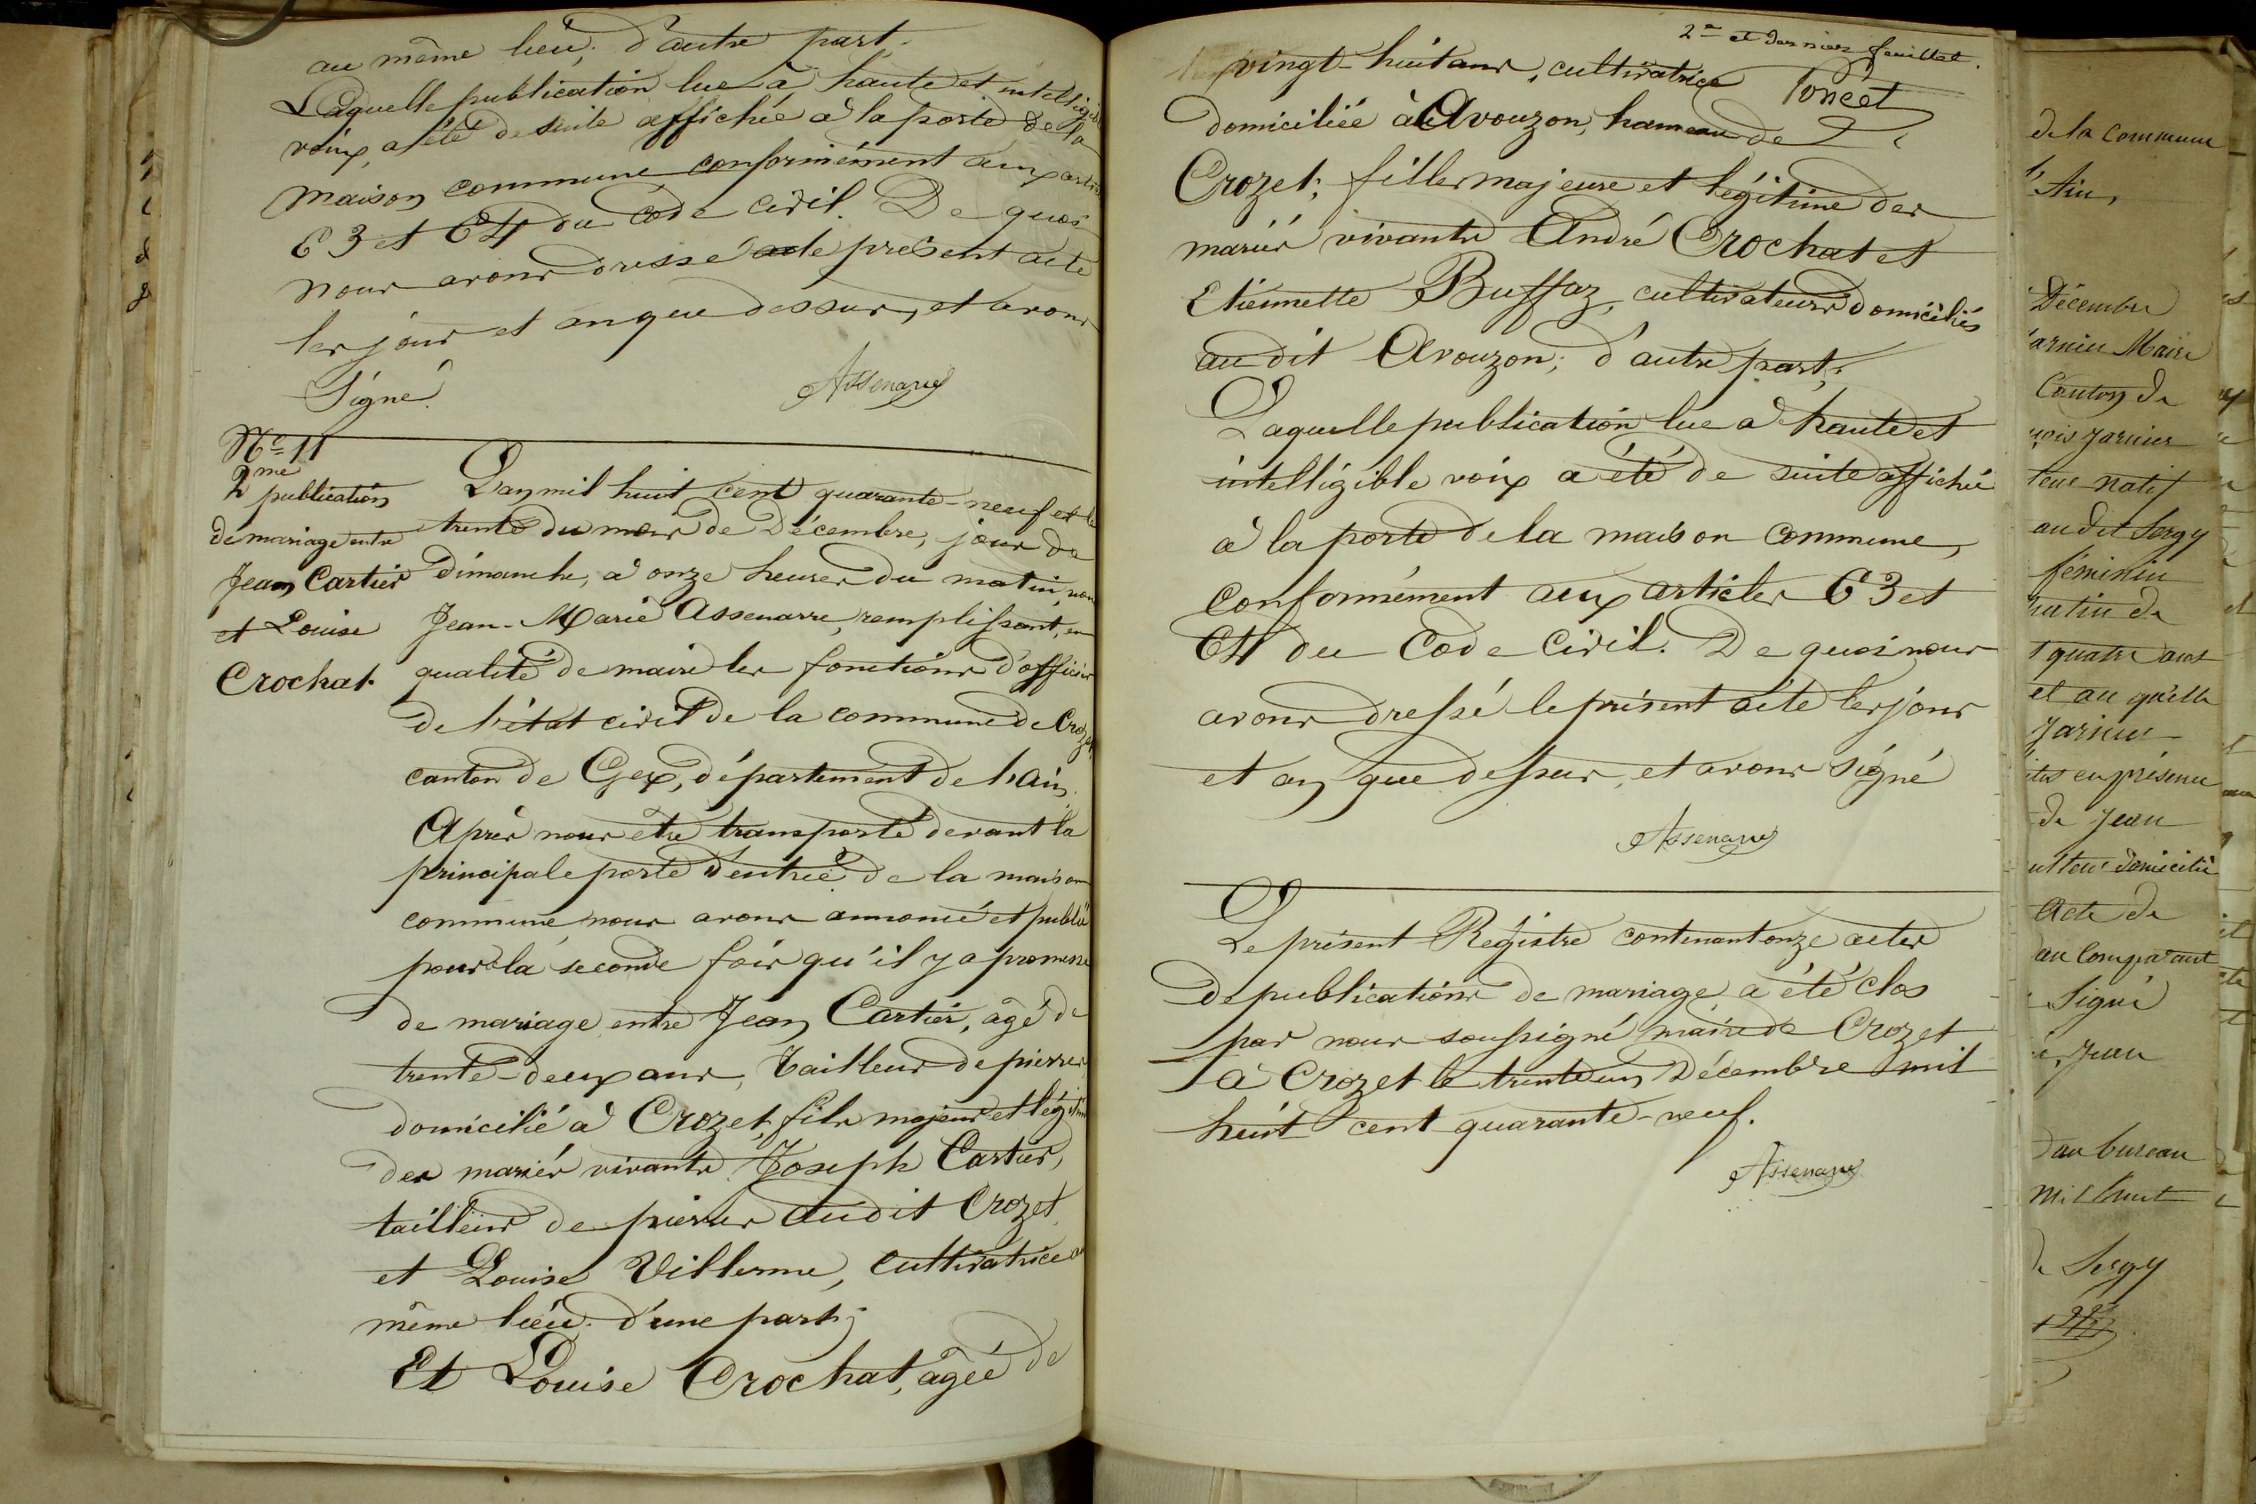 au même lieu; d'autre part.
Laquelle publication lue à haute et intelligible
voix, a été de suite affichée à la porte de la
maison commune conformément aux articles
63 et 64 du code civil. De quoi
nous avons dressé le présent acte
les jour et an que dessus, et avons
Signé.
Assenarre
No 11
2me publication
de mariage entre
Jean Cartier
et Louise
Crochat.
L'an mil huit cent quarante-neuf et le
trente du mois de Décembre, jour de
dimanche, à onze heures du matin, nous
Jean-Marie Assenarre, remplissant, en
qualité de maire les fonctions d'officier
de l'état civil de la commune de Crozet
canton de Gex, département de l'ain.
Après nous être transporté devant la
principale porte d'entrée de la maison
commune, nous avons annoncé et publié
pour la seconde fois qu'il y a promesse
de mariage entre Jean Cartier, âgé de
trente-deux ans, tailleur de pierres
domicilié à Crozet, fils majeur et légitime
des mariés vivants Joseph Cartier,
tailleur de pierres audit Crozet,
et Louise Villerme, cultivatrice au
même lieu. d'une part;
Et Louise Crochat, âgée de
2e et dernier feuillet.
Poncet
vingt-huit ans, cultivatrice
domiciliée à Avouzon, hameau de
Crozet; fille majeure et légitime des
mariés vivants André Crochat et
Etiennette Buffaz, cultivateurs domiciliés
au dit Avouzon; d'autre part.
Laquelle publication lue à haute et
intelligible voix a été de suite affichée
à la porte de la maison commune,
conformément aux articles 63 et
64 du Code Civil. De quoi nous
avons dressé le présent acte les jour
et an que dessus, et avons signé
Assenarre
Le présent Registre contenant onze actes
de publications de mariage a été clos
par nous soussigné maire de Crozet
à Crozet le trente un Décembre mil
huit cent quarante-neuf.
Assenarre
de la commune
l'Ain,
Décembre
Maire
Canton de
Jarnier
natif
au dit Sergy
féminin
matin de
quatre ans
et au quelle
Jarnier
en présence
de Jean
domicilié
Acte de
au Comparant
Signé
Jean
au bureau
mil huit
de Sergy